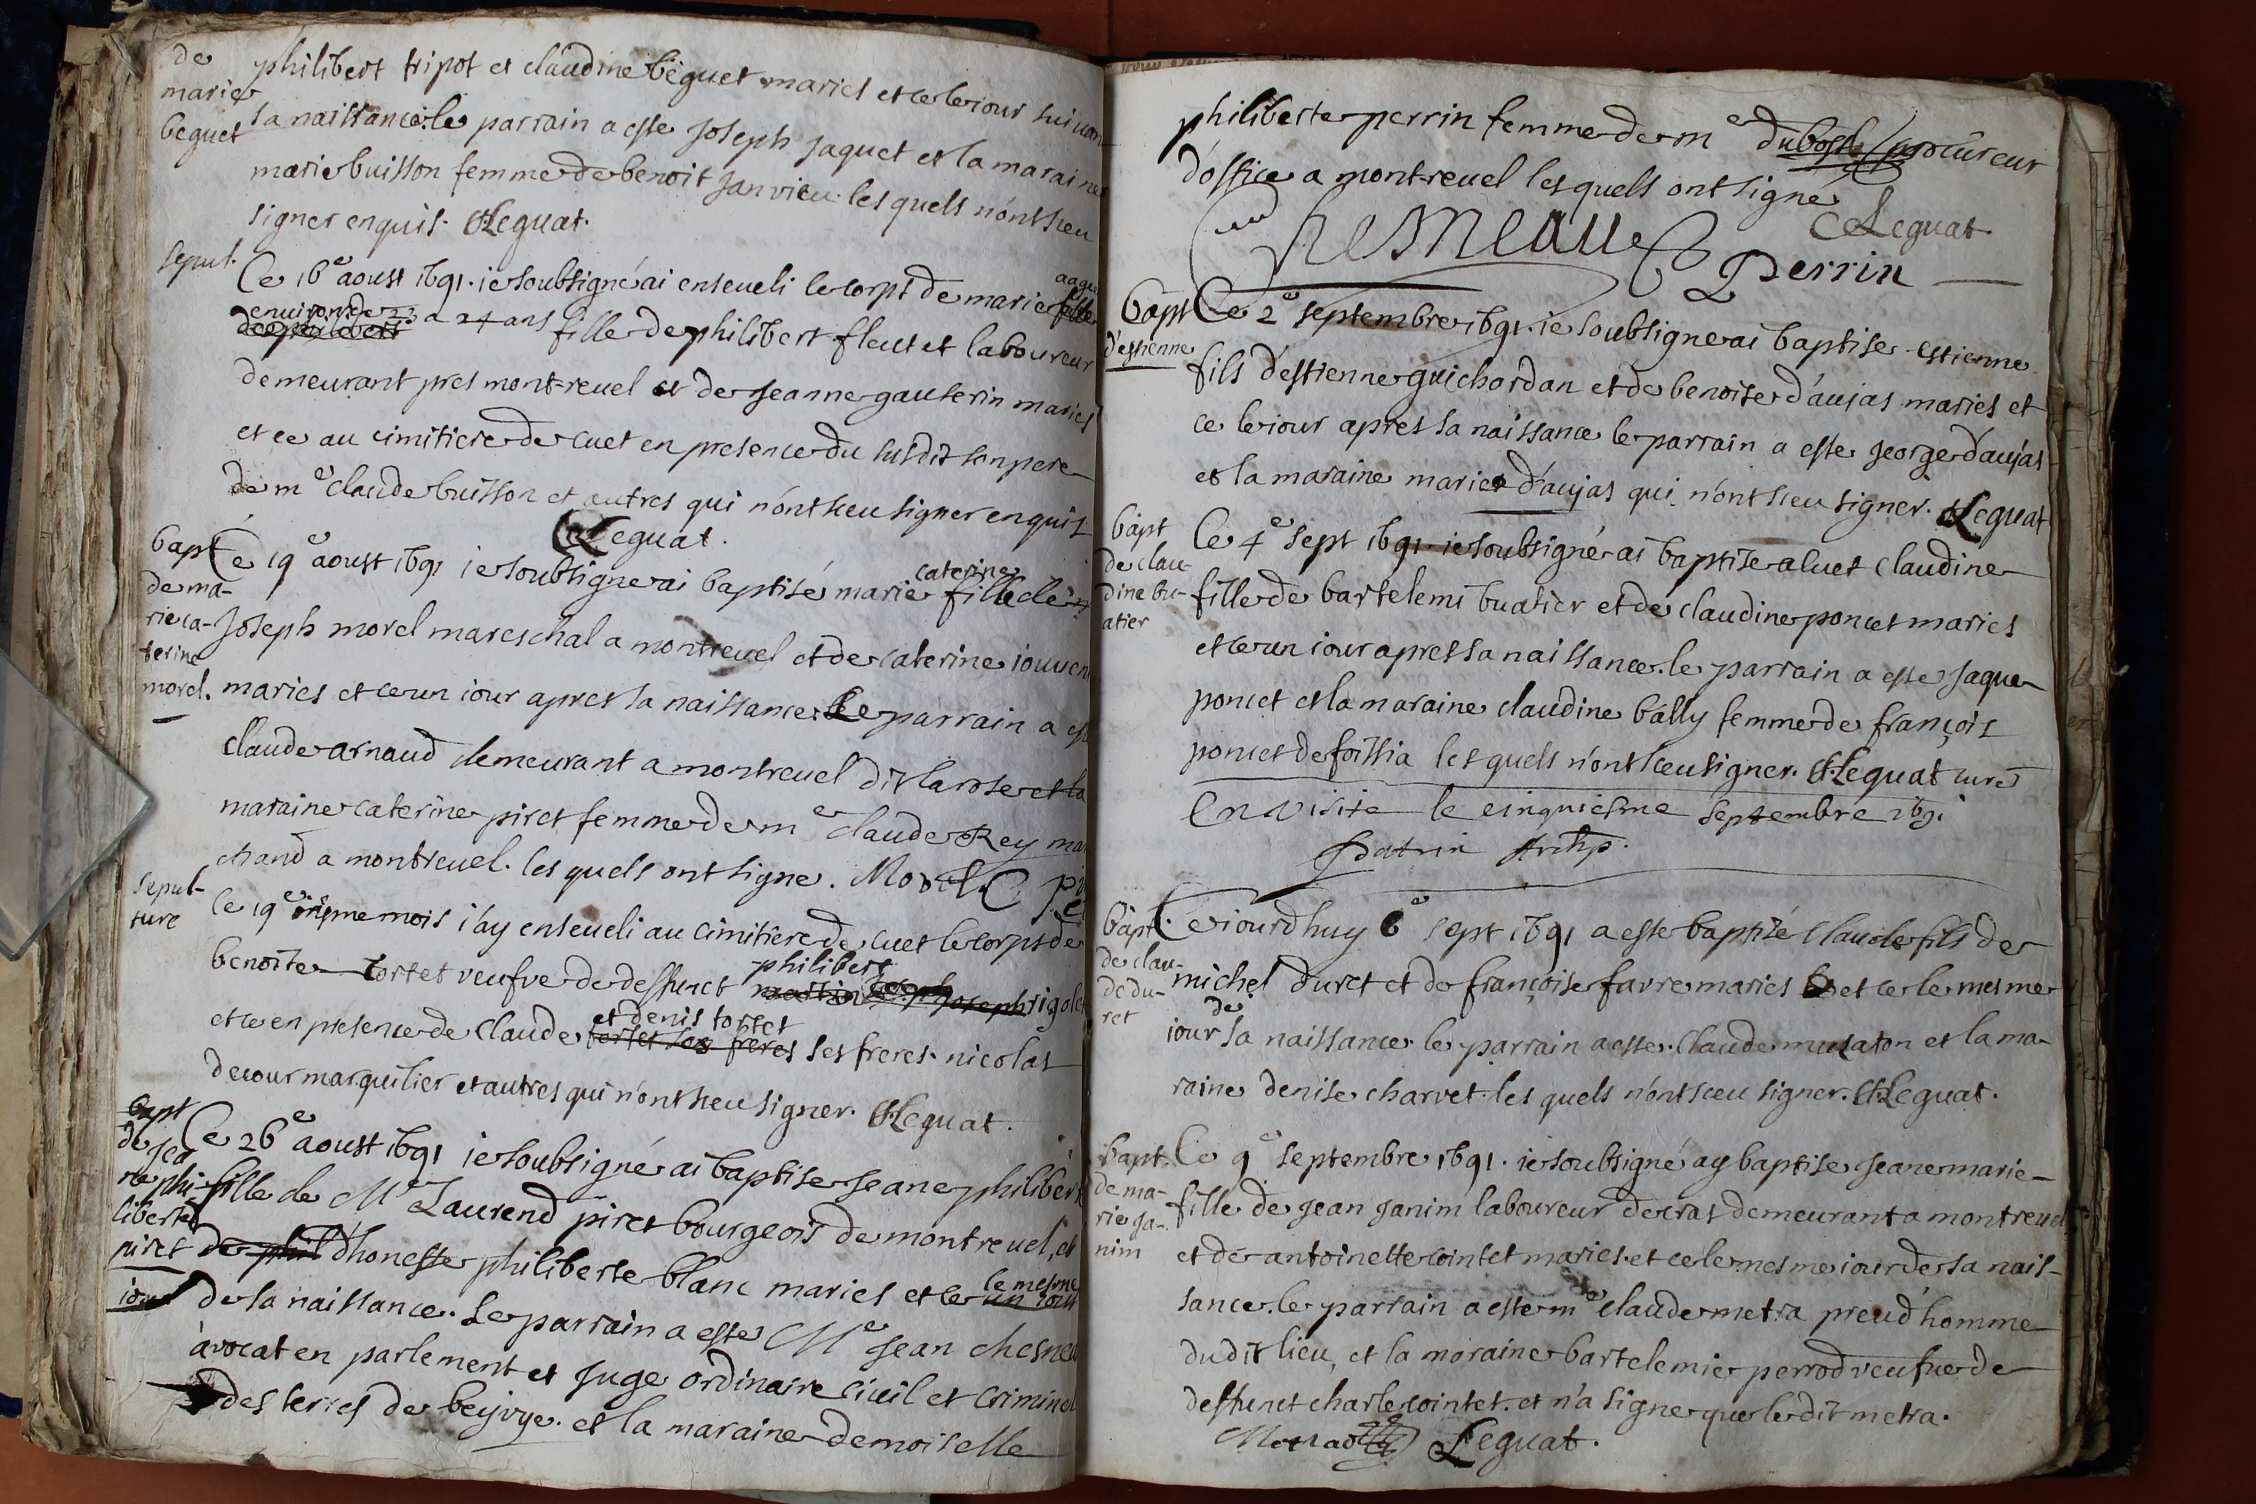 de
marie
beguet
philibert tripot et claudine beguet maries et ce le iour suivan
sa naissance. le parrain a este Joseph Jaquet et la maraine
marie buisson femme de benoit Janvieu. les quels n'ont sceu
signer enquis. Leguat.
sepul.
Ce 16e aoust 1691. ie soubsigné ai enseveli le corps de marie fille aagée
de philibert environ de 23 a 24 ans fille de philibert fleutet laboureur
demeurant pres montrevel et de Jeanne gauterin maries
et ce au cimitiere de cuet en presence du susdit son pere
de me claude buisson et autres qui n'ont sceu signer enquis
Leguat.
bapt
de ma-
rie ca-
terine
morel.
Ce 19e aoust 1691 ie soubsigne ai baptisé marie caterine fille de
Joseph morel mareschal a montrevel et de caterine iouven
maries et ce un iour apres sa naissance. Le parrain a est
claude arnaud demeurant a montrevel dit larose et la
maraine caterine piret femme de me claude Rey mar
chand a montrevel. les quels ont signe. Morel
sepul-
ture
Ce 19e mesme mois i'ay enseveli au cimitiere de cuet le corps de
benoite tortet veufve de deffunct philibert martin Joseph rigolet
et ce en presence de claude et denis tortet tortet ses freres ses freres. nicolas
decour marguilier et autres qui n'ont sceu signer. Leguat.
bapt
de Jea
ne phi-
liberte
piret
Ce 26e aoust 1691 ie soubsigné ai baptise Jeane philibert
fille de Me Laurend piret bourgeois de montrevel, et
de phil d'honeste philiberte blanc maries et ce un iour le mesme
iour de sa naissance. Le parrain a este Me Jean chesne
avocat en parlement et Juge ordinaire civil et criminel
des terres de beyvye. et la maraine demoiselle
philiberte perrin femme de me dubost procureur
d'office a montrevel les quels ont signé
Leguat
Chesneau
Perrin
bapt
d'estienne
Ce 2e septembre 1691. ie soubsigne ai baptise estienne
fils d'estienne guichardan et de benoite d'aujas maries et
ce le iour apres sa naissance le parrain a este george d'aujas
et la maraine marie d'aujas qui n'ont sceu signer. Leguat
bapt
de clau-
dine bu-
atier
Ce 4e sept 1691. ie soubsigné ai baptise a cuet claudine
fille de bartelemi buatier et de claudine poncet maries
et ce un iour apres sa naissance. le parrain a este Jaque
poncet et la maraine claudine bally femme de françois
poncet de foissia les quels n'ont sceu signer. Leguat curé
En visite le cinquiesme septembre 1691
Patrin Archp.
bapt.
de clau-
de du-
ret
Ceiourdhuy 6e sept 1691 a este baptisé claude fils de
michel duret et de françoise favre maries et ce le mesme
iour de sa naissance. le parrain a este. Claude muzaton et la ma-
raine denise charvet. les quels n'ont sceu signer. Leguat.
bapt.
de ma-
rie Ja-
nim
Ce 9e septembre 1691. ie soubsigné ay baptise Jeane marie
fille de Jean Janim laboureur de cras demeurant a montrevel
et de antoinette cointet maries. et ce le mesme iour de sa nais-
sance. le parrain a este me claude metra preud'homme
dudit lieu, et la maraine bartelemie perrod veufve de
deffunct charle cointet. et n'a signe que le dit metra.
Metra Leguat.